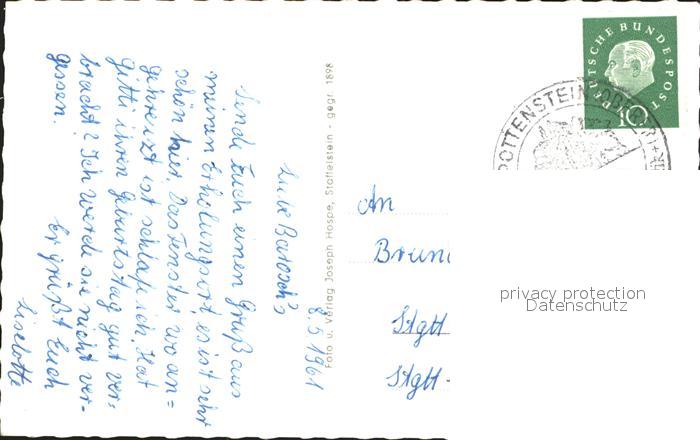 8.5.1961
Liebe Barosch's
Sende Euch einen Gruß aus
meinen Erholungsort, es ist sehr
schön hier. Das Fenster wo an=
gekreuzt ist schlafe ich. Hat
Gitti ihren Geburtstag gut ver=
bracht? Ich werde sie nicht ver-
gessen.
Es grüßt Euch
Liselotte
Foto u. Verlag Joseph Hospe, Staffelstein - gegr. 1898
DEUTSCHE BUNDESPOST
10
POTTENSTEIN
An
Stgtt
Stgtt -
privacy protection
Datenschutz